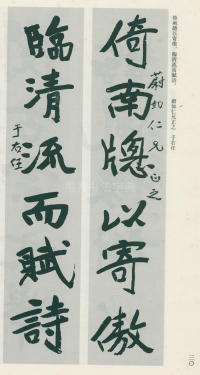 倚南牕以寄傲 臨清流而賦詩 蔚如仁兄正之 于右任
倚南牕以寄傲
蔚如仁兄正之
臨清流而賦詩
于右任
三〇